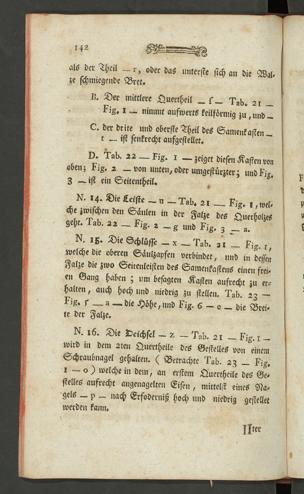 142
als der Theil — r, oder das unterste sich an die Wal-
ze schmiegende Bret.
B. Der mittlere Quertheil — s — Tab. 21 —
Fig. 1 — nimmt aufwerts keilförmig zu, und —
C. der drite und oberste Theil des Samenkasten —
t — ist senkrecht aufgestellet.
D. Tab. 22 — Fig. 1 — zeiget diesen Kasten von
oben; Fig. 2 — von unten, oder umgestürzter; und Fig.
3 — ist ein Seitentheil.
N. 14. Die Leiste — u — Tab. 21 — Fig. 1, wel-
che zwischen den Säulen in der Falze des Querholzes
geht. Tab. 22 — Fig. 2 — g und Fig. 3 — a.
N. 15. Die Schlüsse — x — Tab. 21 — Fig. 1,
welche die oberen Säulzapfen verbindet, und in dessen
Falze die zwo Seitenleisten des Samenkastens einen frei-
en Gang haben; um besagten Kasten aufrecht zu er-
halten, auch hoch und niedrig zu stellen. Tab. 23 —
Fig. 5 — a — die Höhe, und Fig. 6 — o — die Brei-
te der Falze.
N. 16. Die Deichsel — z — Tab. 21 — Fig. 1 —
wird in dem 2ten Quertheile des Gestelles von einem
Schraubnagel gehalten. (Betrachte Tab. 23 — Fig.
1 — o) welche in dem, an erstem Quertheile des Ge-
stelles aufrecht angenagelten Eisen, mittelst eines Na-
gels — p — nach Erforderniß hoch und niedrig gestellet
werden kann.
IIter